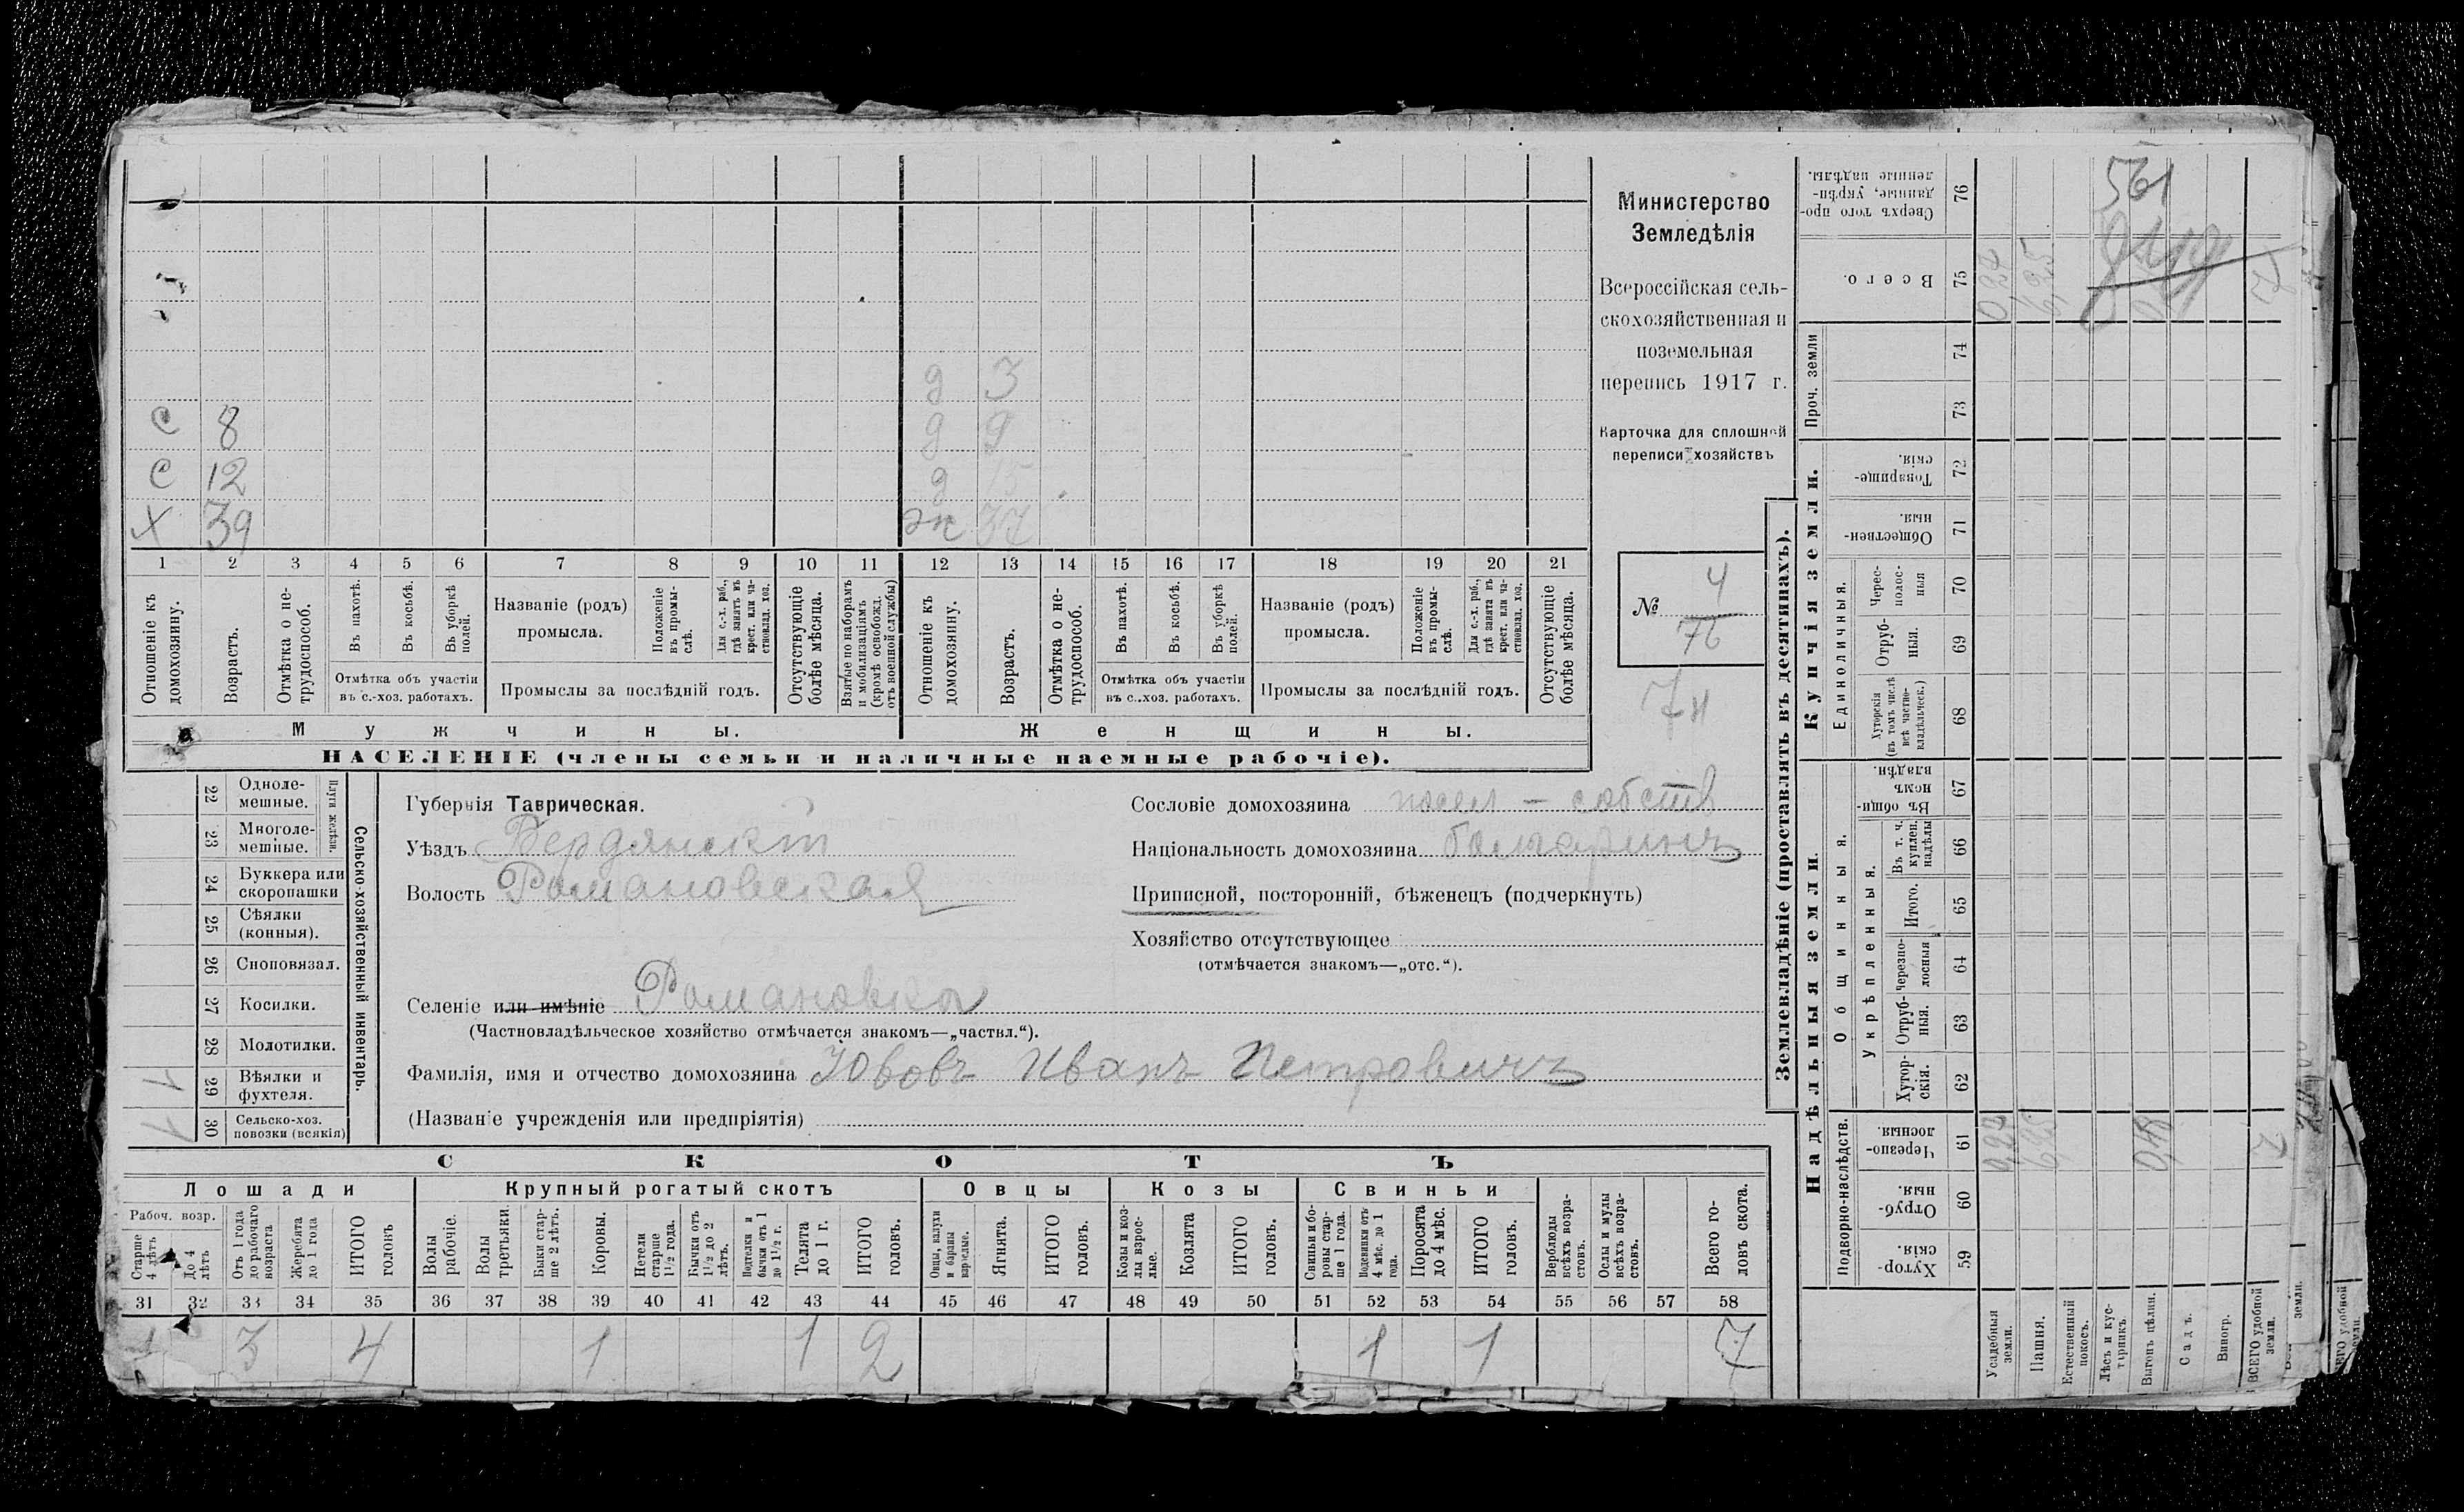 561
Министерство
Земледѣлія
Всероссійская сель-
скохозяйственная и
поземельная
перепись 1917 г.
Карточка для сплошной
переписи хозяйствъ
№ 4
76
74
д 3
С 8 д 9
С 12 д 15
Х 39 ж 37
1 2 3 4 5 6 7 8 9 10 11 12 13 14 15 16 17 18 19 20 21
Отношеніе къ домохозяину.
Возрастъ.
Отмѣтка о не-трудоспособ.
Въ пахотѣ.
Въ косьбѣ.
Въ уборкѣ полей.
Отмѣтка объ участіи
въ с.-хоз. работахъ.
Названіе (родъ)
промысла.
Положеніе въ промы-слѣ.
Для с.-х. раб., гдѣ занятъ въ крест. или ча-стновлад. хоз.
Промыслы за послѣдній годъ.
Отсутствующіе болѣе мѣсяца.
Взятые по наборамъ и мобилизаціямъ (кромѣ освобожд. отъ военной службы)
Отношеніе къ домохозяину.
Возрастъ.
Отмѣтка о не-трудоспособ.
Въ пахотѣ.
Въ косьбѣ.
Въ уборкѣ полей.
Отмѣтка объ участіи
въ с.-хоз. работахъ.
Названіе (родъ)
промысла.
Положеніе въ промы-слѣ.
Для с.-х. раб., гдѣ занята въ крест. или ча-стновлад. хоз.
Промыслы за послѣдній годъ.
Отсутствующіе болѣе мѣсяца.
Мужчины. Женщины.
НАСЕЛЕНІЕ (члены семьи и наличные наемные рабочіе).
Сельско-хозяйственный инвентарь.
Плуги желѣзн.
22 Одноле-мешные.
23 Многоле-мешные.
24 Буккера или скоропашки
25 Сѣялки (конныя).
26 Сноповязал.
27 Косилки.
28 Молотилки.
1 29 Вѣялки и фухтеля.
1 30 Сельско-хоз. повозки (всякія)
Губернія Таврическая.
Уѣздъ Бердянскій
Волость Романовская
Селеніе или имѣніе Романовка
(Частновладѣльческое хозяйство отмѣчается знакомъ—„частвл.“).
Фамилія, имя и отчество домохозяина Ювовъ Иванъ Петровичъ
(Названіе учрежденія или предпріятія)
Сословіе домохозяина посел – собств
Національность домохозяина болгаринъ
Приписной, посторонній, бѣженецъ (подчеркнуть)
Хозяйство отсутствующее
(отмѣчается знакомъ—„отс.“).
СКОТЪ
Лошади Крупный рогатый скотъ Овцы Козы Свиньи
Рабоч. возр.
Старше 4 лѣтъ
До 4 лѣтъ
Отъ 1 года до рабочаго возраста
Жеребята до 1 года
ИТОГО головъ
Волы рабочіе.
Волы третьяки.
Быки стар-ше 2 лѣтъ.
Коровы.
Нетели старше 1½ года.
Бычки отъ 1½ до 2 лѣтъ.
Подтелки и бычки отъ 1 до 1½ г.
Телята до 1 г.
ИТОГО головъ.
Овцы, валухи и бараны взрослые.
Ягнята.
ИТОГО головъ.
Козы и коз-лы взрос-лые.
Козлята
ИТОГО головъ.
Свиньи и бо-ровы стар-ше 1 года.
Подсвинки отъ 4 мѣс. до 1 года.
Поросята до 4 мѣс.
ИТОГО головъ.
Верблюды всѣхъ возра-стовъ.
Ослы и мулы всѣхъ возра-стовъ.
Всего го-ловъ скота.
31 32 33 34 35 36 37 38 39 40 41 42 43 44 45 46 47 48 49 50 51 52 53 54 55 56 57 58
1 3 4 1 1 2 1 1 7
Землевладѣніе (проставлять въ десятинахъ).
Надѣльныя земли. Купчія земли. Проч. земли
Подворно-наслѣдств. Общинныя. Единоличныя.
Укрѣпленныя.
59 Хутор-скія.
60 Отруб-ныя.
61 Черезпо-лосныя.
62 Хутор-скія.
63 Отруб-ныя.
64 Черезпо-лосныя
65 Итого.
66 Въ т. ч. куплен. надѣлы
67 Въ общи-номъ владѣн.
68 Хуторскія (въ томъ числѣ всѣ частно-владѣльческ.)
69 Отруб-ныя.
70 Черес-полос-ныя
71 Обществен-ныя.
72 Товарище-скія.
73
74
75 Всего.
76 Сверхъ того про-данные, укрѣп-ленные надѣлы.
Усадебныя земли. 0,27 0,27
Пашня. 6,25 6,25
Естественный покосъ.
Лѣсъ и кус-тарникъ.
Выгонъ цѣлин. 0,48
Садъ.
Виногр.
ВСЕГО удобной земли. 7 7
земли.